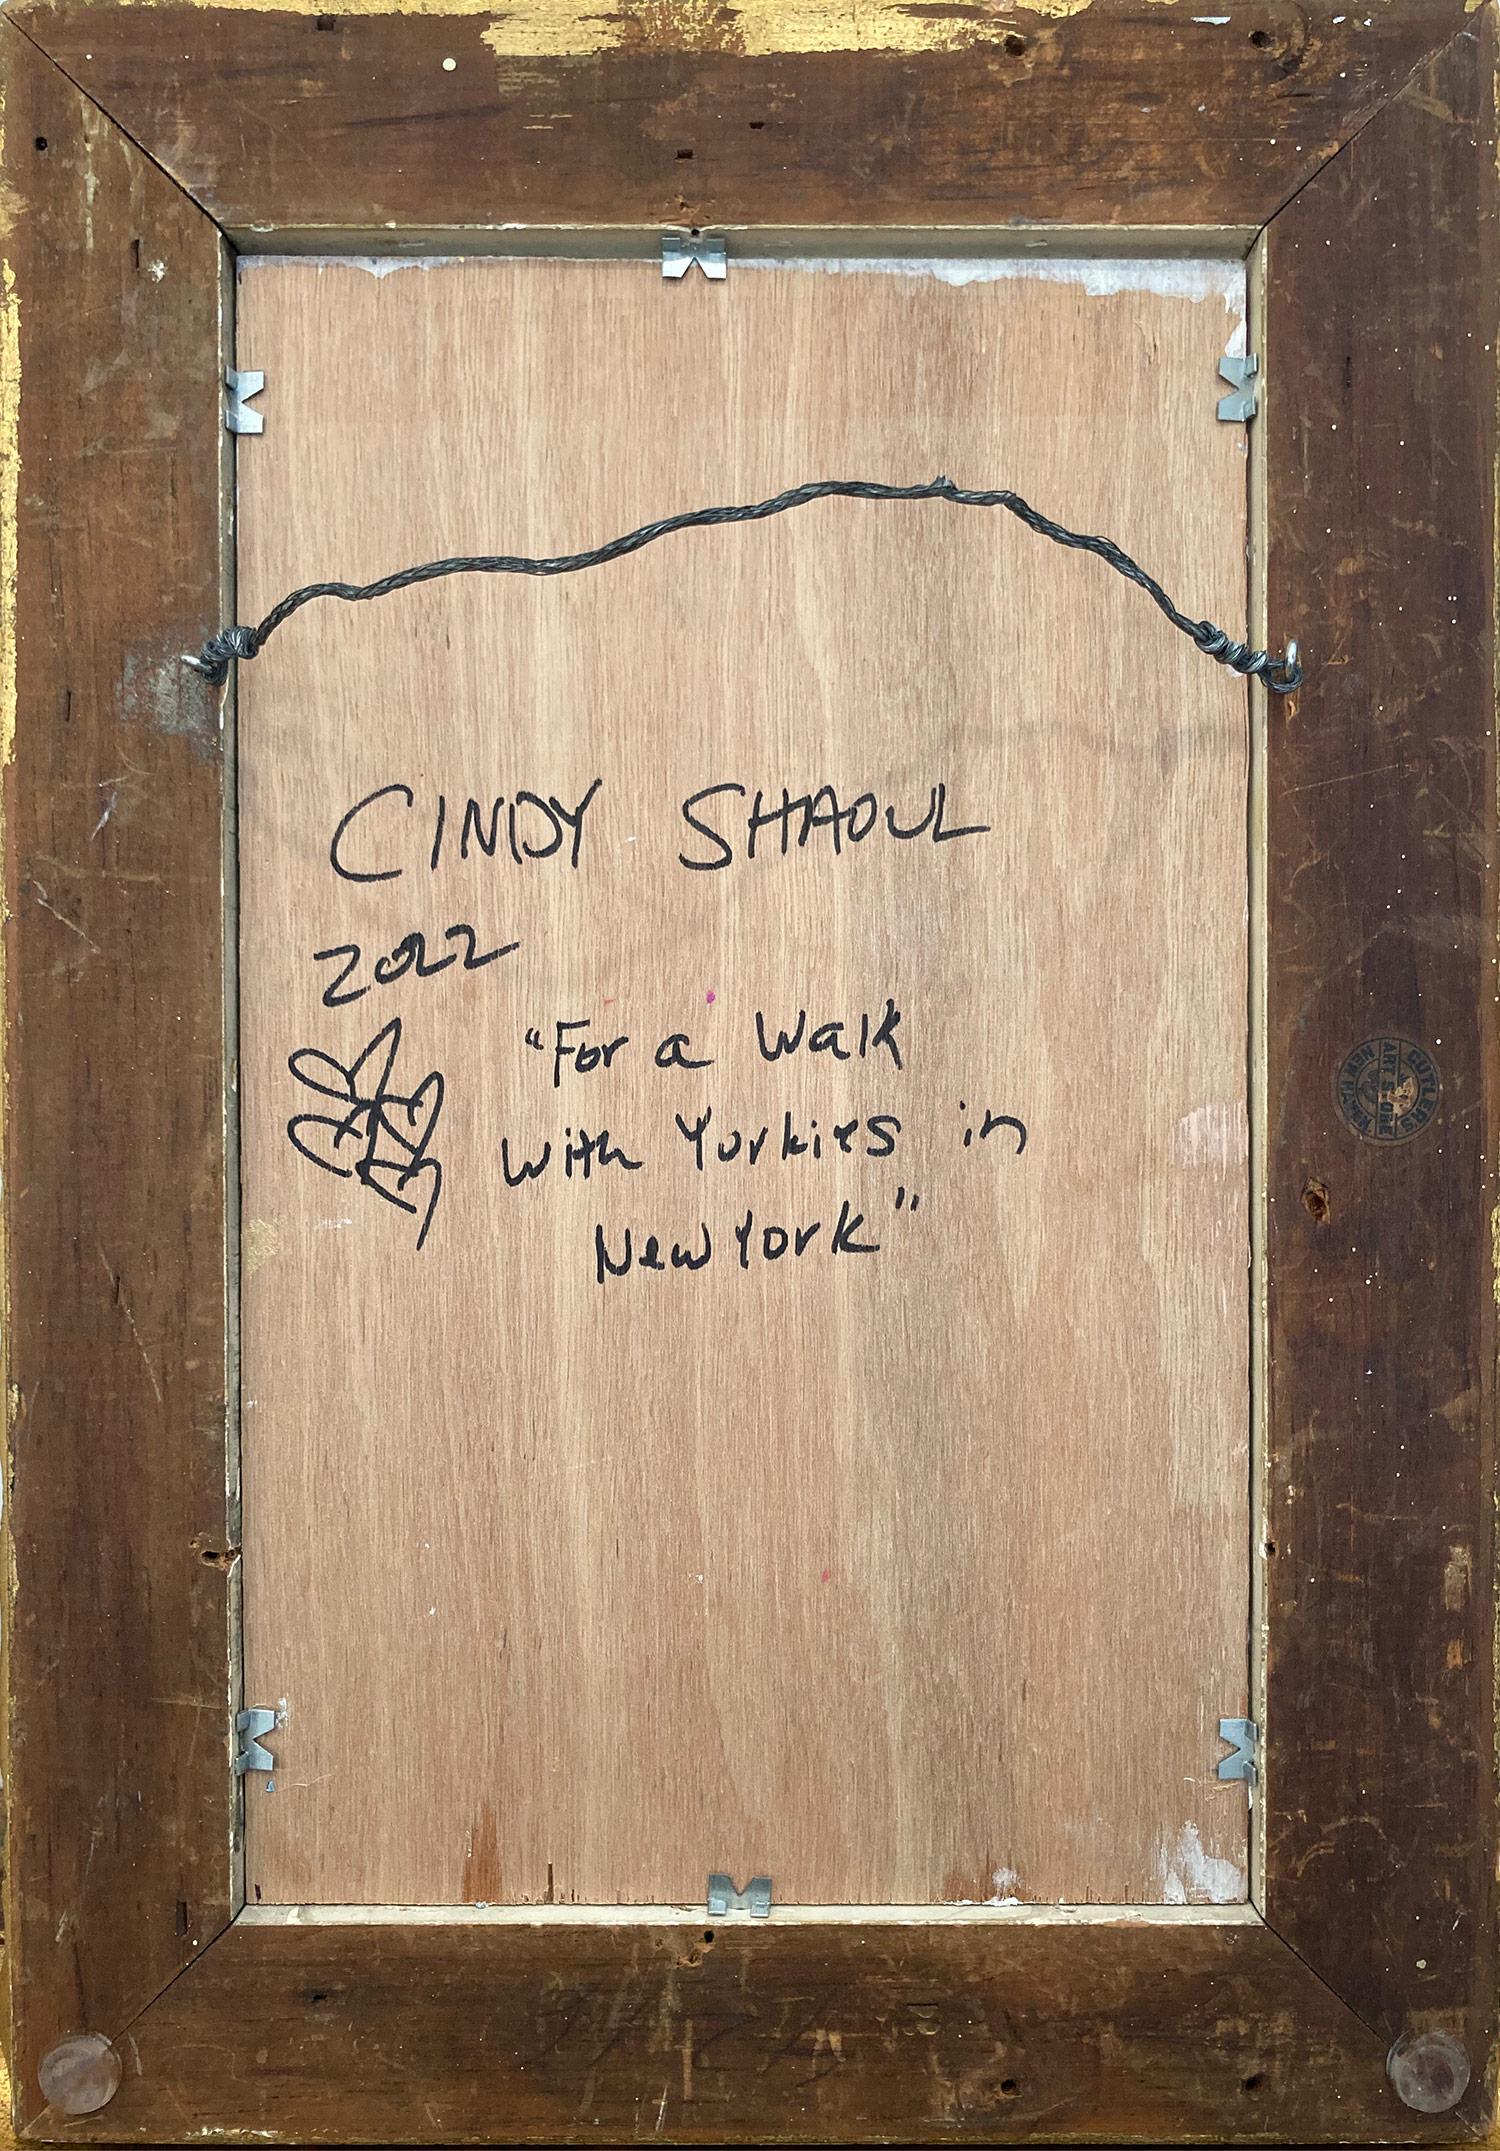 CINDY SHAOUL
2022
"For a Walk
with Yorkies in
New York"
CUTLER'S
ART STORE
NEW HAVEN